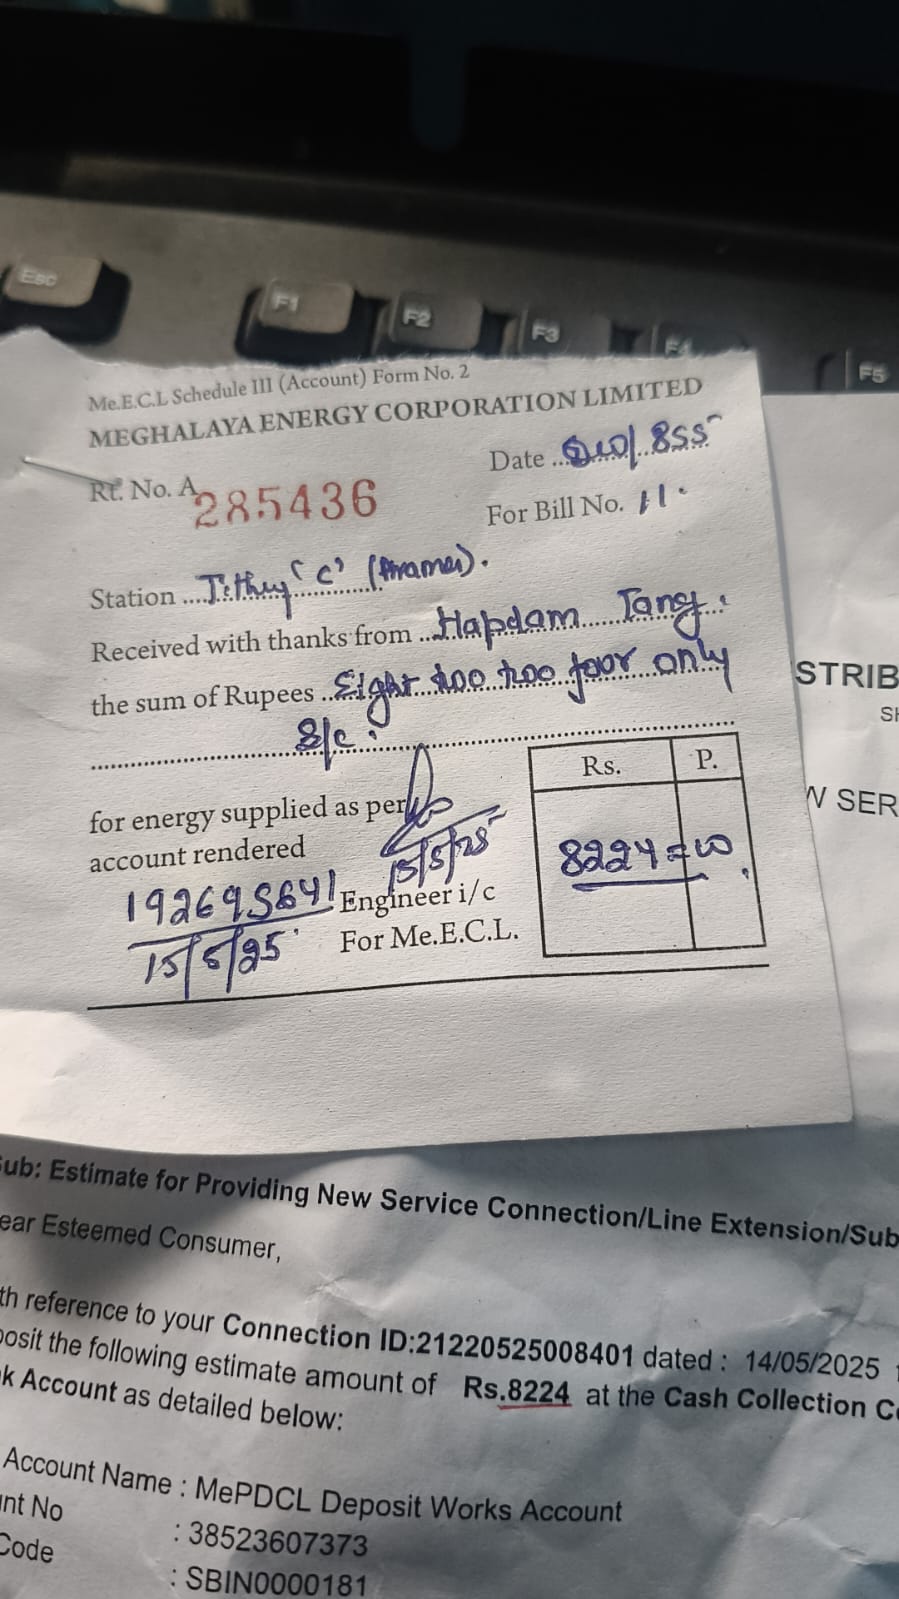 Esc
F1
F2
F3
F4
F5
Me.E.C.L Schedule III (Account) Form No. 2
MEGHALAYA ENERGY CORPORATION LIMITED
Rt. No. A 285436
Date
For Bill No. 11.
Station 'C'
Received with thanks from Hapdam Tang.
the sum of Rupees Eight too too four only
S/c.
Rs. P.
8224=00
for energy supplied as per
account rendered
15/5/25
192695641
15/5/25
Engineer i/c
For Me.E.C.L.
STRIB
SH
W SER
Sub: Estimate for Providing New Service Connection/Line Extension/Sub
ear Esteemed Consumer,
th reference to your Connection ID:21220525008401 dated : 14/05/2025
posit the following estimate amount of Rs.8224 at the Cash Collection C
k Account as detailed below:
Account Name : MePDCL Deposit Works Account
nt No : 38523607373
Code : SBIN0000181